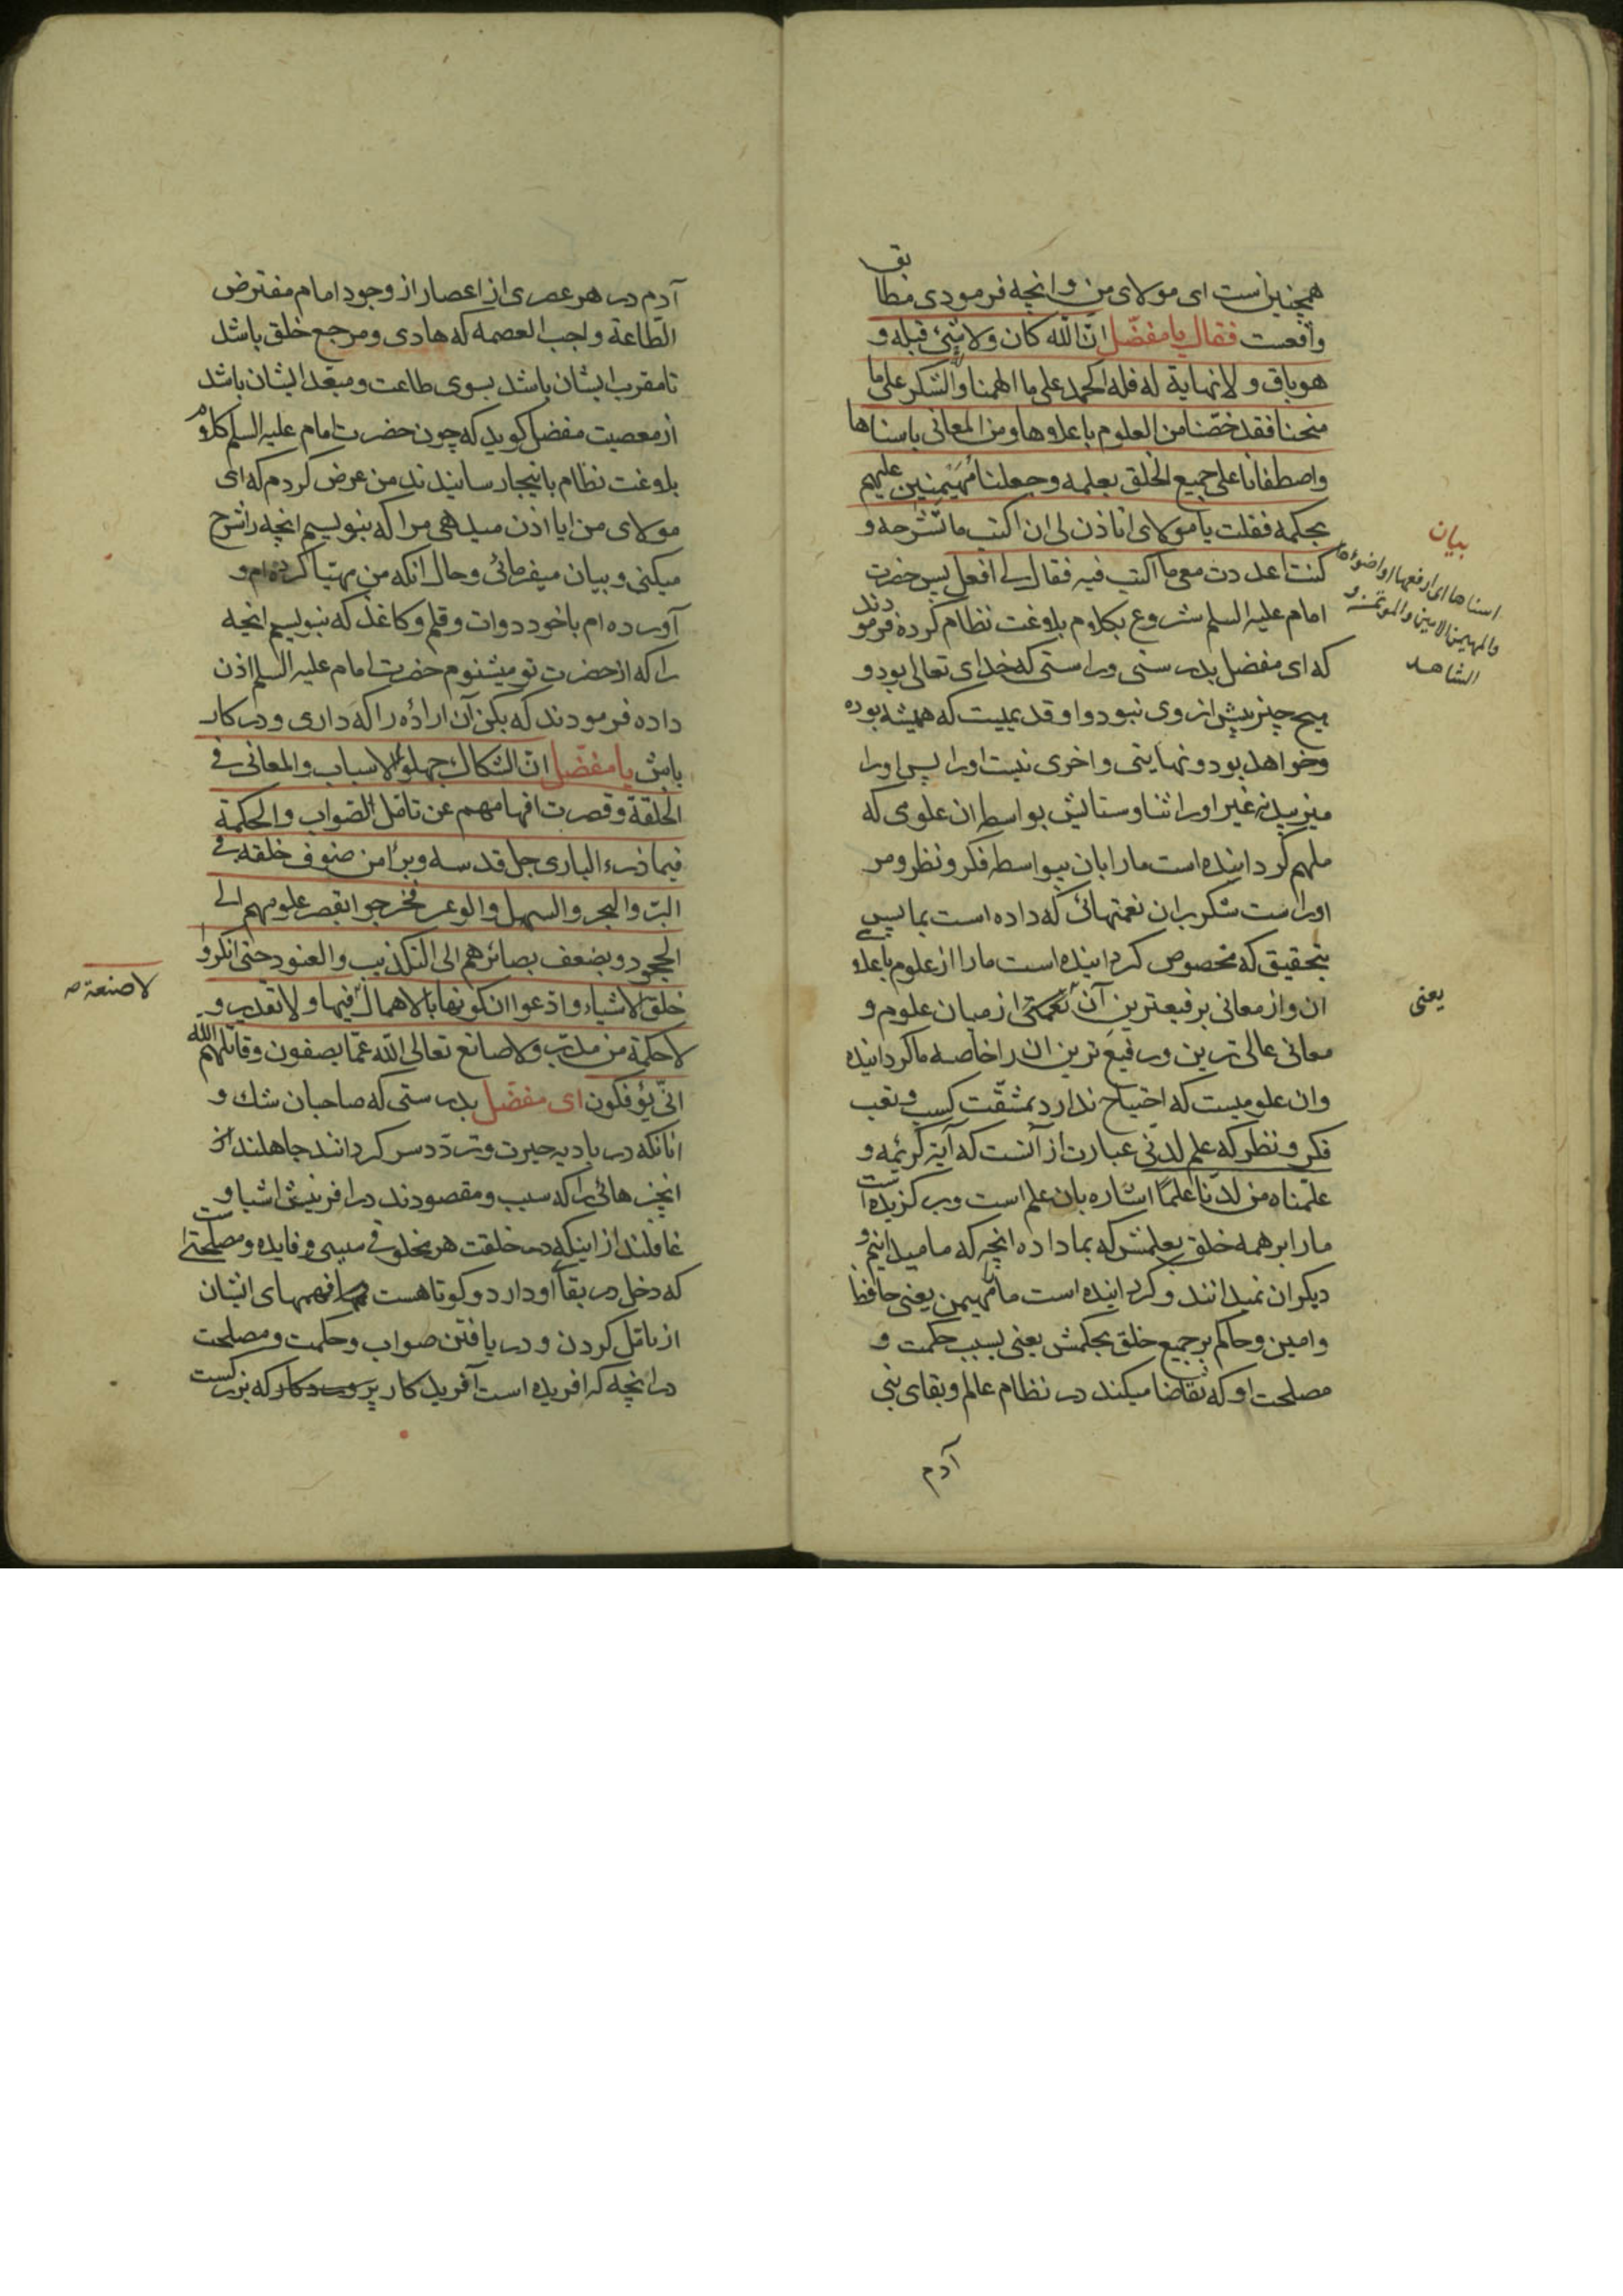 همچنین است ای مولای من و انچه فرمودی مطابق
واقعست فقال یا مفضل ان الله کان ولا شئ قبله و
هو باق و لا نهایة له فله الحمد علی ما الهمنا و الشکر علی ما
منحنا فقد خصّنا من العلوم باعلاوها و من المعانی باسناها
واصطفانا علی جمیع الخلق بعلمه وجعلنا مُهَیمِنین علیهم
بحکمه فقلت یا مولای اتاذن لی ان اکتب ما تشرحه و
کنت اعددت معی ما اکتب فیه فقال لی افعل پس حضرت
امام علیه السلم شروع بکلام بلاوغت نظام کرده فرمودند
که ای مفضل بدرستی وراستی که خدای تعالی بود و
هیچ چیز پیش از وی نبود و او قدیمیست که همیشه بوده
وخواهد بود و نهایتی و اخری نیست اورا پس اورا
میزیبد نه غیر اورا ثنا و ستایش بواسطه ان علومی که
ملهم کردانیده است مارا بان بیواسطه فکر و نظر و مر
اوراست شکر بران نعمتهائی که داده است بما پس
بتحقیق که مخصوص کردانیده است مارا از علوم باعلای
ان و از معانی برفیعترین آن از میان علوم و
معانی عالی ترین و رفیع ترین ان را خاصه ما کردانیده
وان علومیست که احتیاج ندارد بمشقّت کسب و تعب
فکر و نظر که علم لدنی عبارت از آنست که آیة کریمه و
علّمناه من لدنّا علمًا اشاره بان علم است و برکزیده است
مارا بر همه خلق بعلمش که بما داده انچه که ما میدانیم و
دیکران نمیدانند و کردانیده است مارا مهیمن یعنی حافظ
وامین و حاکم بر جمیع خلق بحکمش یعنی بسبب حکمت و
مصلحت او که تقاضا میکند در نظام عالم و بقای بنی
آدم
بیان
اسناها ای ارفعها او اضوئها
والمهیمن الامین والموتمن و
الشاهد
یعنی
آدم در هر عصری از اعصار از وجود امام مفترض
الطّاعة واجب العصمه که هادی و مرجع خلق باشد
تا مقرب ایشان باشد بسوی طاعت و مبعّد ایشان باشد
از معصیت مفضل کوید که چون حضرت امام علیه السلم کلام
بلاوغت نظام باینجا رسانیدند من عرض کردم که ای
مولای من ایا اذن میدهی مرا که بنویسم انچه را شرح
میکنی و بیان میفرمائی و حال انکه من مهیّا کرده‌ام و
آورده ام با خود دوات و قلم و کاغذ که بنویسم انچه
را که از حضرت تو میشنوم حضرت امام علیه السلم اذن
داده فرمودند که بکن آن اراده را که داری و در کار
باش یا مفضّل انّ الشکاک جهلوا الاسباب والمعانی فی
الخلقة و قصرت افهامهم عن تامّل الصّواب والحکمة
فیما ذرء الباری جل قدسه و برأ من صنوف خلقه فی
البرّ والبحر والسهل والوعر فخرجوا بقصر علومهم الی
الجحود و بضعف بصائرهم الی التکذیب والعنود حتی انکروا
خلق الاشیاء و ادّعوا ان کونها بالاهمال فیها و لا تقدیر و
لا حکمة من مدبّر و لا صانع تعالی الله عمّا یصفون و قاتلهم الله
انّی یؤفکون ای مفضّل بدرستی که صاحبان شک و
انانکه در بادیه حیرت و تردّد سر کردانند جاهلند از
انچیزهائی را که سبب و مقصودند در افرینش اشیا و
غافلند از اینکه در خلقت هر مخلوقی سببی و فایده و مصلحتی است
که دخل در بقاء او دارد و کوتاهست فهمهای ایشان
از تامّل کردن و دریافتن صواب و حکمت و مصلحت
در انچه که افریده است آفریدکار که بزرکست
لا صنعة ص